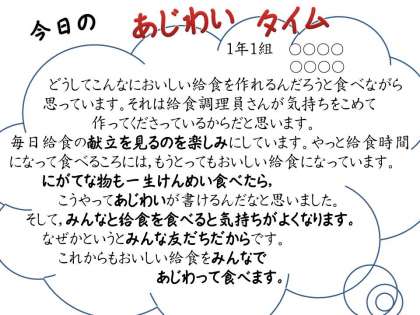 今日の あじわい タイム
1年1組 ○○○○
○○○○
どうしてこんなにおいしい給食を作れるんだろうと食べながら
思っています。それは給食調理員さんが気持ちをこめて
作ってくださっているからだと思います。
毎日給食の献立を見るのを楽しみにしています。やっと給食時間
になって食べるころには,もうとってもおいしい給食になっています。
にがてな物も一生けんめい食べたら,
こうやってあじわいが書けるんだなと思いました。
そして,みんなと給食を食べると気持ちがよくなります。
なぜかというとみんな友だちだからです。
これからもおいしい給食をみんなで
あじわって食べます。